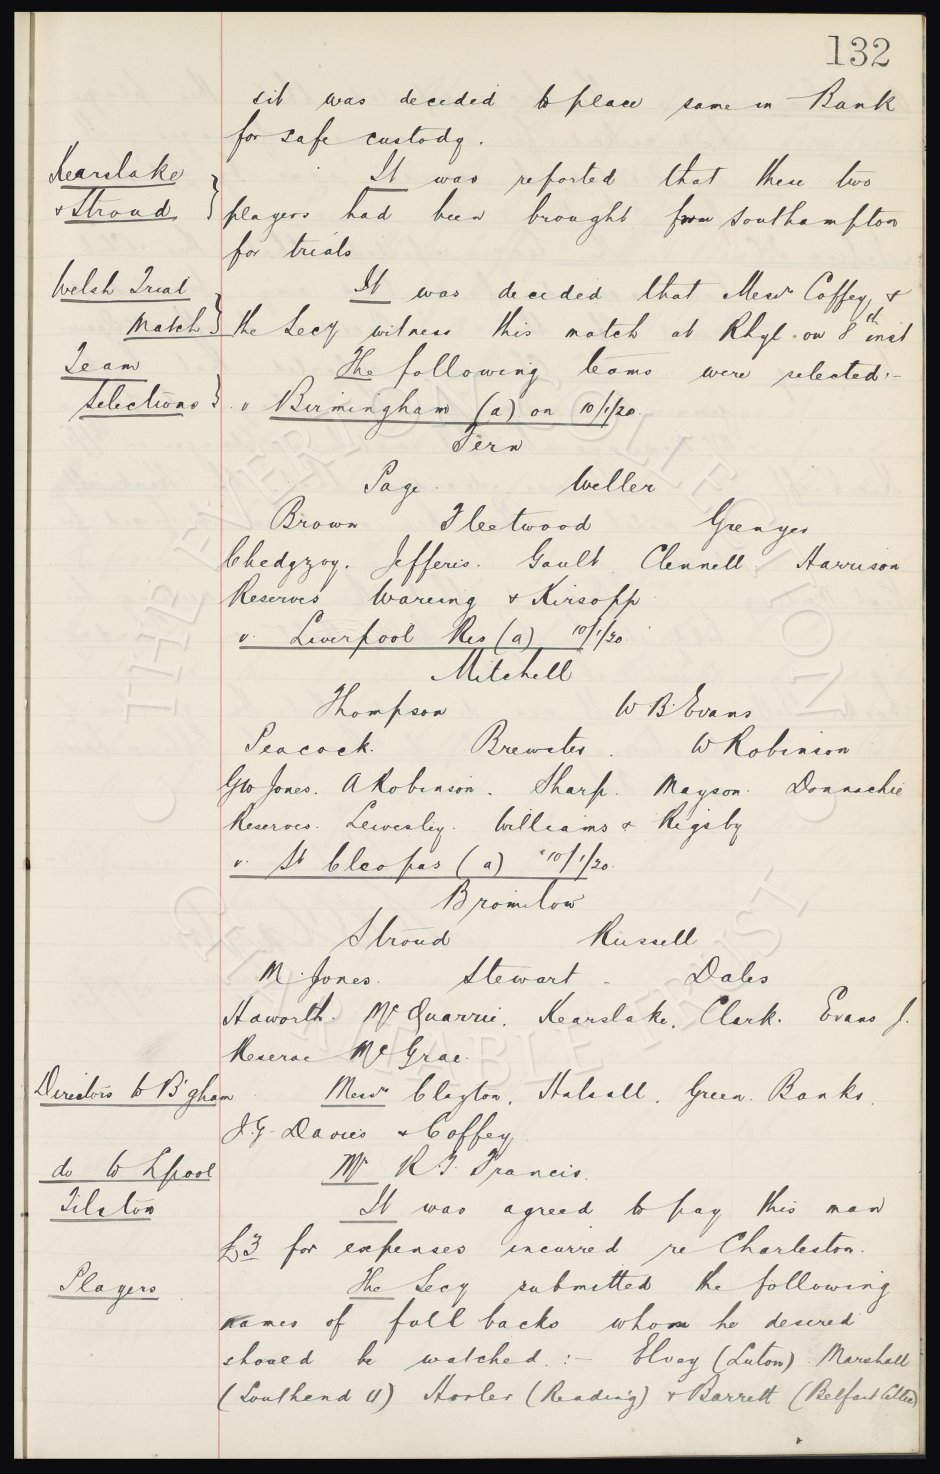 132
sit was decided to place same in Bank
for safe custody.
Kearslake
& Stroud
It was reported that these two
players had been brought from Southampton
for trials
Welsh Trial
Match
It was decided that Messrs Coffey &
the Secy witness this match at Rhyl on 8th inst
Team
Selections
The following teams were selected:-
v Birmingham (a) on 10/1/20.
Fern
Page. Weller
Brown Fleetwood Grenyer
Chedgzoy. Jefferis. Gault Clennell Harrison
Reserves Wareing & Kirsopp
v. Liverpool Res (a) 10/1/20.
Mitchell
Thompson W B. Evans
Peacock. Brewster. W Robinson
GW Jones. A Robinson. Sharp. Mayson. Donnachie
Reserves. Lewesley. Williams & Rigsby
v. St Cleopas (a) 10/1/20.
Bromilow
Stroud Russell
M. Jones. Stewart. Dates
Haworth. McQuarrie. Kearslake. Clark. Evans J.
Reserve McGrae.
Directors to B'gham
Messrs Clayton, Halsall, Green. Banks.
J.G. Davies & Coffey
do to Lpool
Mr R. T. Francis.
Tilston
It was agreed to pay this man
£3 for expenses incurred re Charleston.
Players
The Secy submitted the following
names of full backs whom he desired
should be watched :- Elvey (Luton). Marshall
(Southend U) Horler (Reading) & Barrett (Belfast Celtic)
THE EVERTON COLLECTION
CHARITABLE TRUST